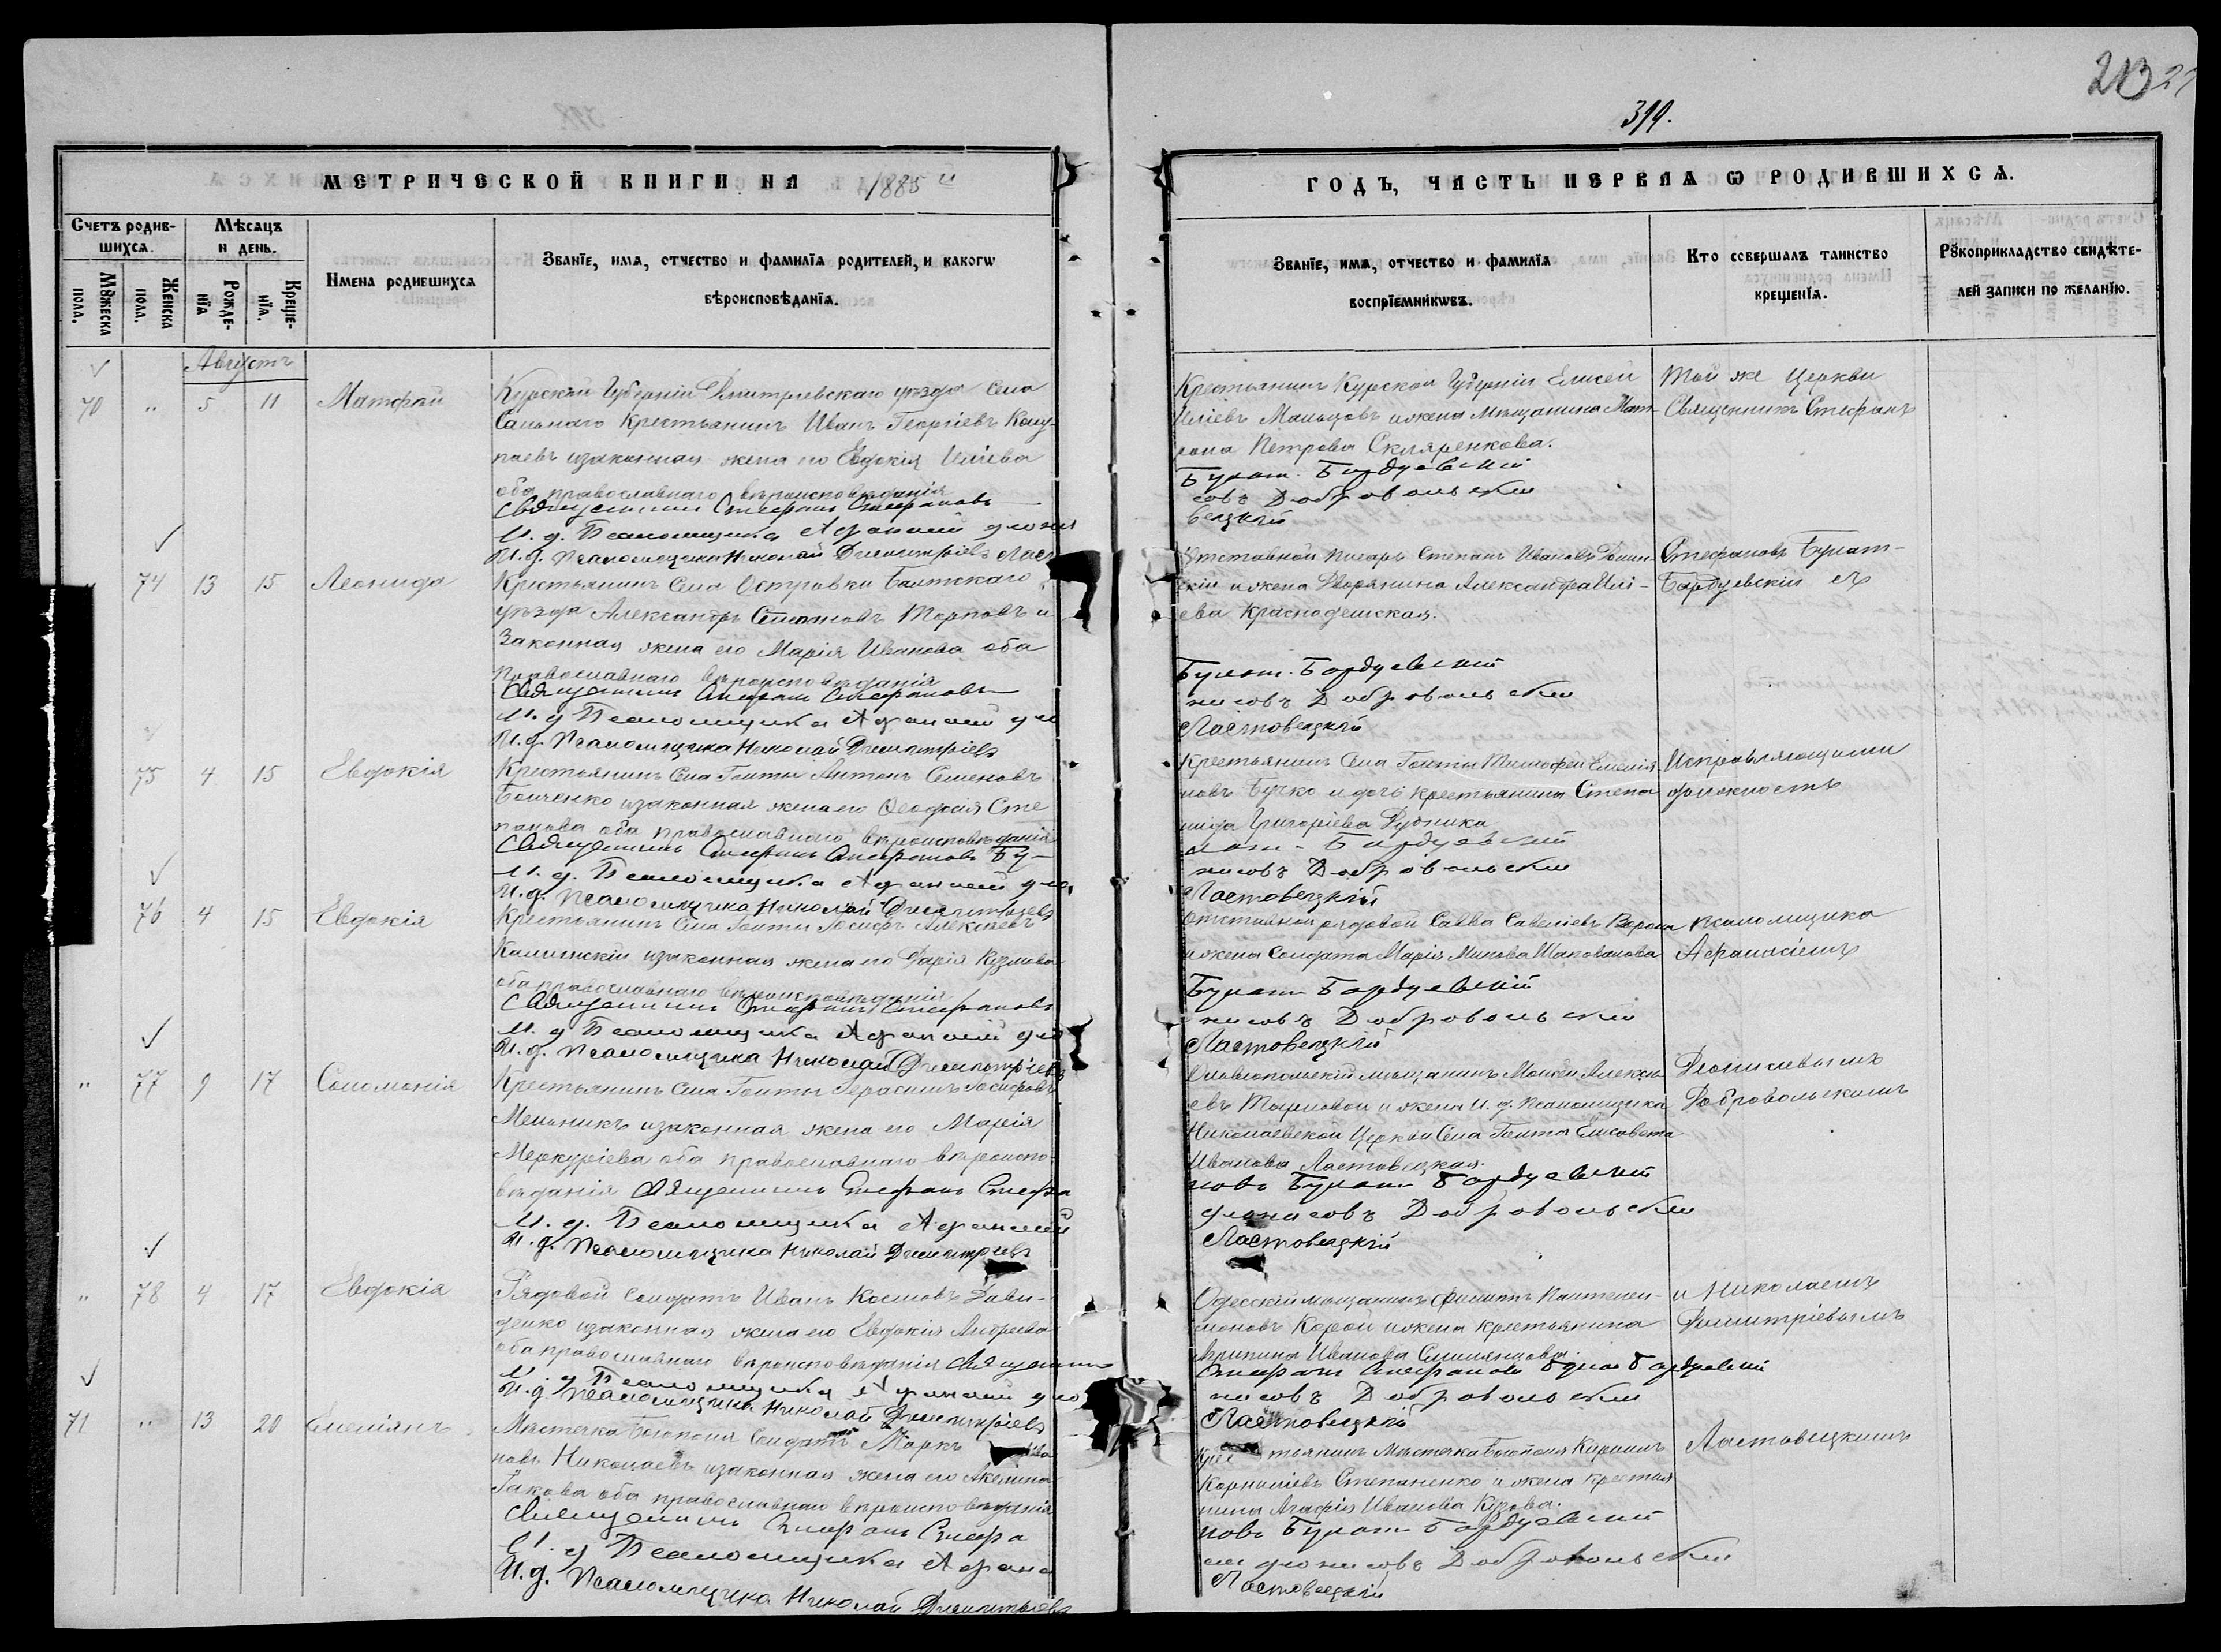 213
319.
МЕТРИЧЕСКОЙ КНИГИ НА 1885 й
ГОДЪ, ЧАСТЬ ПЕРВАЯ Ѡ РОДИВШИХСѦ.
Счетъ родив-
шихсѧ.
Мѣсяцъ
и день.
Мꙋжеска
пола.
Женска
пола.
Рожде-
нїѧ
Креще-
нїѧ.
Имена родившихсѧ
Званїе, имѧ, отчество и фамилїа родителей, и какогѡ
вѣроисповѣданїѧ.
Званїе, имѧ, отчество и фамилїа
воспрїемникѡвъ.
Кто совершалъ таинство
крещенїѧ.
Рꙋкоприкладство свидѣте-
лей записи по желанїю.
Августъ
70 " 5 11 Матфей
Курской Губерніи Дмитріевскаго уѣзда Села
Сальнаго Крестьянинъ Иванъ Георгіевъ
паевъ и законная жена его Евдокія Иліева
оба православнаго вѣроисповѣданія
Священникъ Стефанъ Стефановъ
И. д. Псаломщика Афанасій Діони
И. д. Псаломщика Николай Димитріевъ Ласт
Крестьянинъ Курской Губерніи Елисей
Иліевъ Мальцовъ и жена мѣщанина Мат-
рона Петрова Скляренкова.
Булат. Бардуевскій
совъ Добровольскій
вецкій
Той же Церкви
Священникъ Стефанъ
74 13 15 Леонида
Крестьянинъ Села Островки Балтскаго
уѣзда Александръ Стефановъ Торповъ и
Законная жена его Марія Иванова оба
Православнаго вѣроисповѣданія
Священникъ Стефанъ Стефановъ
И. д. Псаломщика Афанасій Діо
И. д. Псаломщика Николай Димитріевъ
Отставной писарь Степанъ Ивановъ
скій и жена Дворянина Александра Илі-
ева Краснодемская.
Булат. Бардуевскій
нисовъ Добровольскій
Ластовецкій
Стефановъ Булат-
Бардуевскій съ
75 4 15 Евдокія
Крестьянинъ Села Гоиты Антонъ Семеновъ
Бойченко и законная жена его Феодосія Сте
панова оба православнаго вѣроисповѣданія
Священникъ Стефанъ Стефановъ Бу-
И. д. Псаломщика Афанасій Діо
И. д. Псаломщика Николай Димитріевъ
Крестьянинъ Села Гоиты Тимофей Емелія
новъ Бучко и дочь крестьянина Степа
нида Григоріева Дудника
лат- Бардуевскій
нисовъ Добровольскій
Ластовецкій
Исправляющими
должность
76 4 15 Евдокія
Крестьянинъ Села Гоиты Іосифъ Алексѣевъ
Калинскій и законная жена его Дарія Кузмива
оба православнаго вѣроисповѣданія
Священникъ Стефанъ Стефановъ
И. д. Псаломщика Афанасій Діо
И. д. Псаломщика Николай Димитріевъ
Отставной рядовой Савва Савеліевъ Ворона
и жена Солдата Марія Минова Шаповалова
Булат Бардуевскій
нисовъ Добровольскій
Ластовецкій
псаломщика
Афанасіемъ
" 77 9 17 Соломонія
Крестьянинъ Села Гоиты Герасимъ Іосифовъ
Мельникъ и законная жена его Марія
Меркуріева оба православнаго вѣроиспо-
вѣданія Священникъ Стефанъ Стефа
И. д. Псаломщика Афанасій
И. д. Псаломщика Николай Димитріевъ
Ольвіопольскій мѣщанинъ Моисей Алексѣ
евъ и жена И. д. Псаломщика
Николаевской Церкви Села Гоиты Елисавета
Иванова Ластовецкая.
новъ Булат Бардуевскій
Діонисовъ Добровольскій
Ластовецкій
Діонисіевымъ
Добровольскимъ
" 78 4 17 Евдокія
Рядовой Солдатъ Иванъ Косьмовъ Дави-
денко и законная жена его Евдокія Андреева
оба православнаго вѣроисповѣданія Священник
И. д. Псаломщика Афанасій Діо
И. д. Псаломщика Николай Димитріевъ
Одесскій мѣщанинъ Филиппъ Пантелей-
моновъ Корой и жена крестьянина
Агрипина Иванова
Стефанъ Стефановъ Булат Бардуевскій
нисовъ Добровольскій
Ластовецкій
и Николаемъ
Димитріевымъ
71 " 13 20 Емеліянъ
Мѣстечка Богополя Солдатъ Маркъ Ива
новъ Николаевъ и законная жена его Акелина
Іакова оба православнаго вѣроисповѣданія
Священникъ Стефанъ Стефа
И. д. Псаломщика Афана
И. д. Псаломщика Николай Димитріевъ
Крестьянинъ Мѣстечка Богополя Кирилъ
Корниліевъ Степаненко и жена крестья
нина Агафія Иванова
новъ Булат Бардуевскій
сій Діонисовъ Добровольскій
Ластовецкій
Ластовецкимъ